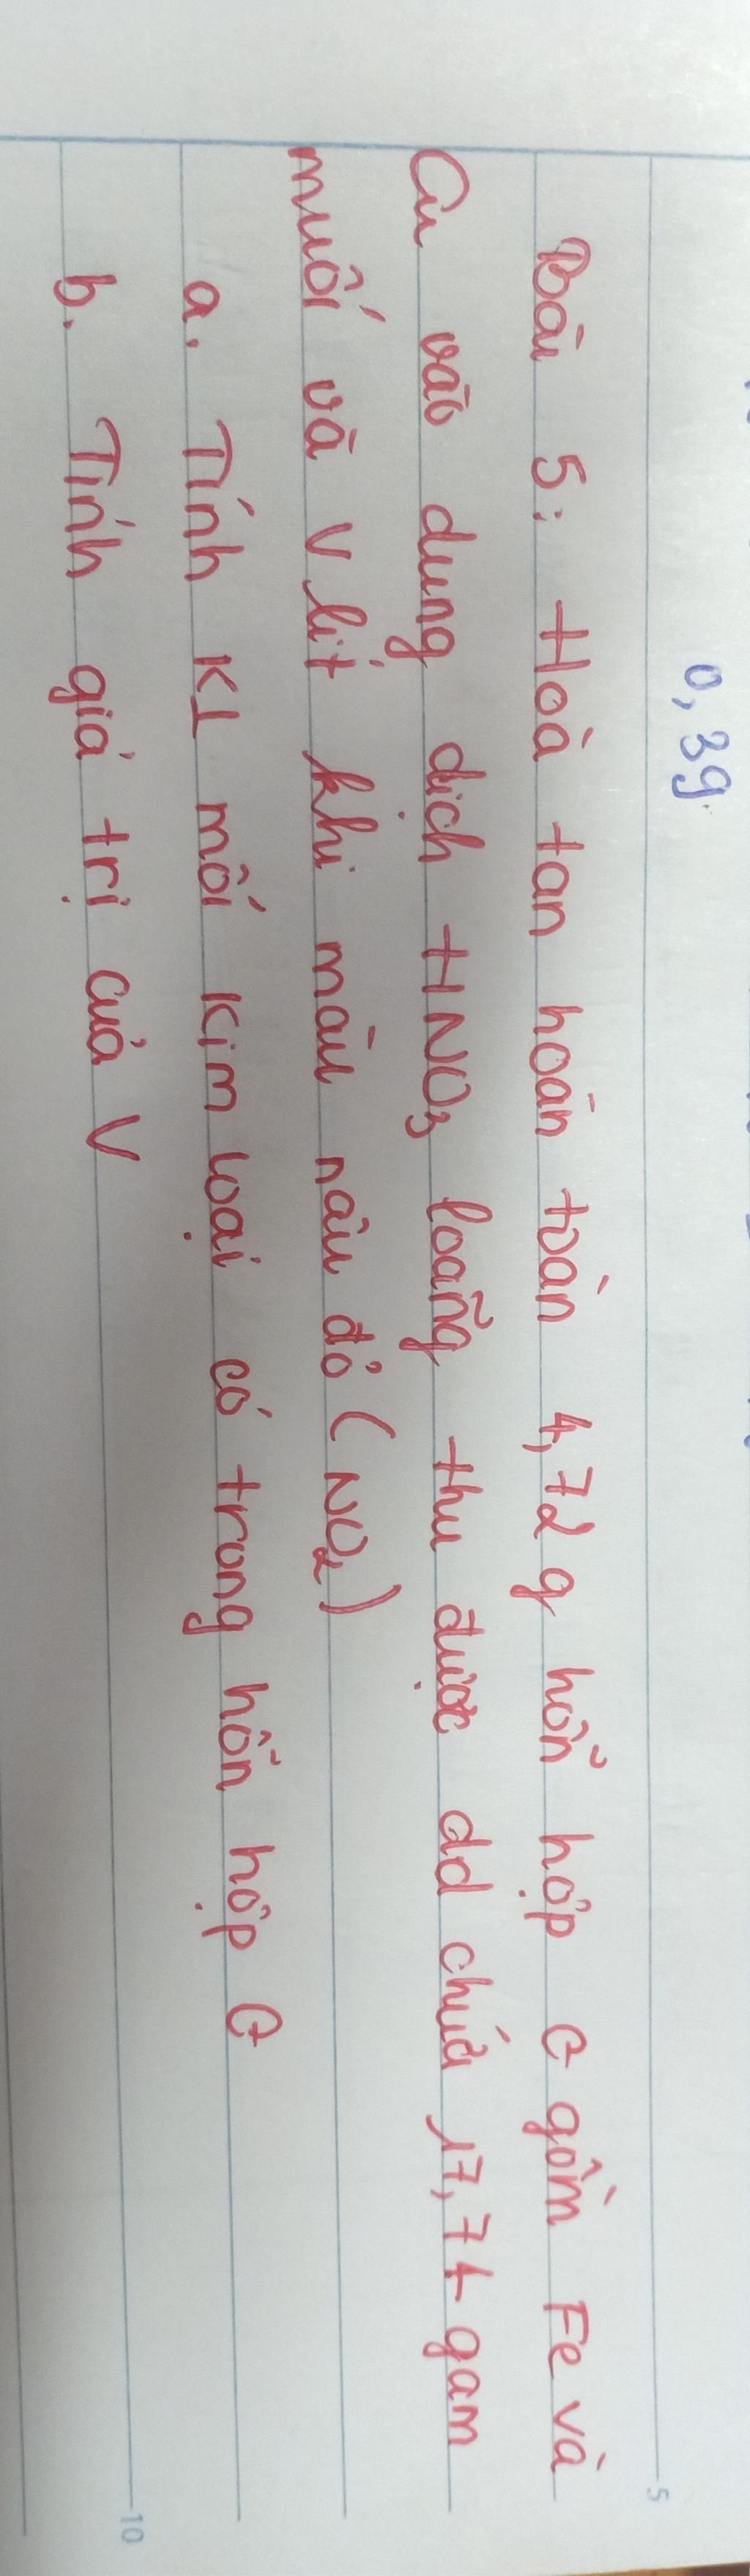 0,3g.
5
Bài 5: Hoà tan hoàn toàn 4,72g hỗn hợp G gồm Fe và
Cu vào dung dịch HNO3 loãng thu được dd chứa 17,74 gam
muối và V lít khí màu nâu đỏ (NO2)
a. Tính KL mỗi kim loại có trong hỗn hợp G
b. Tính giá trị của V
10